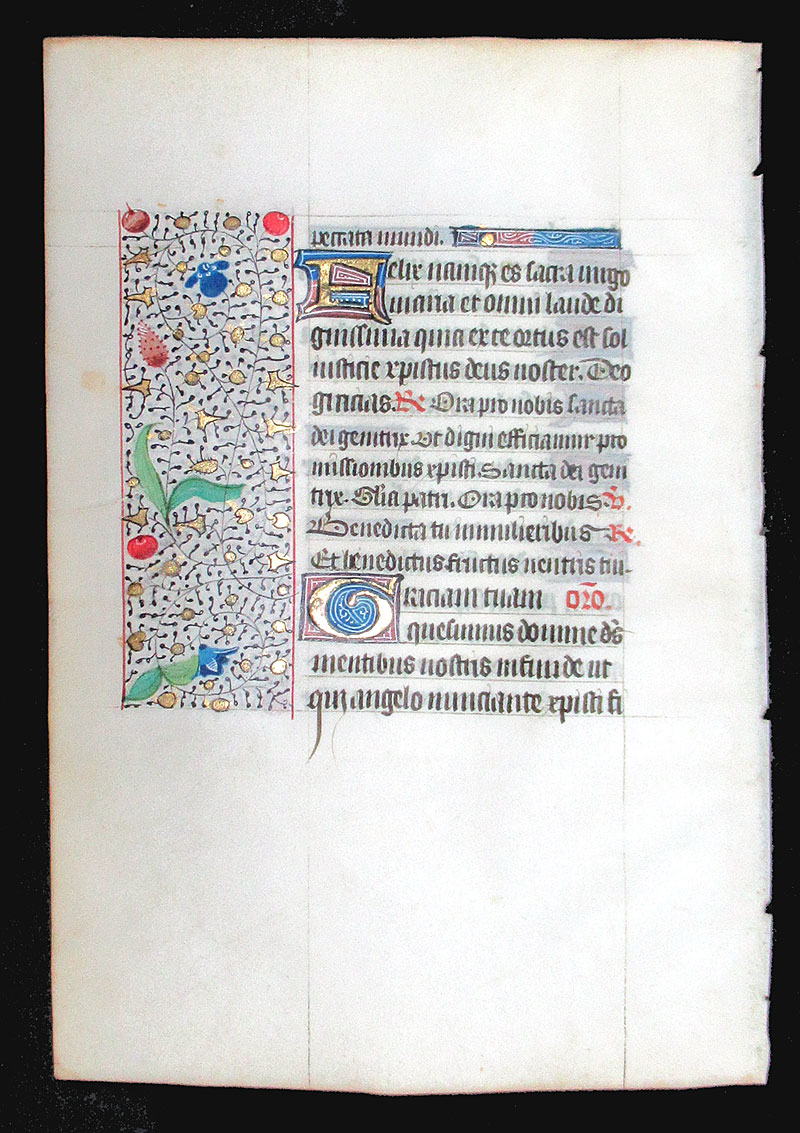 peccata mundi.
Felix namq; es sacra uirgo
maria et omni laude di
gnissima quia ex te ortus est sol
iusticie xpistus deus noster. Deo
gracias. R Ora pro nobis sancta
dei genitrix. Vt digni efficiamur pro
missionibus xpisti. Sancta dei geni
trix. Glia patri. Ora pro nobis. V.
Benedicta tu in mulieribus R.
Et benedictus fructus uentris tui.
Graciam tuam oro.
quesumus domine ds
mentibus nostris infunde ut
qui angelo nunciante xpisti fi